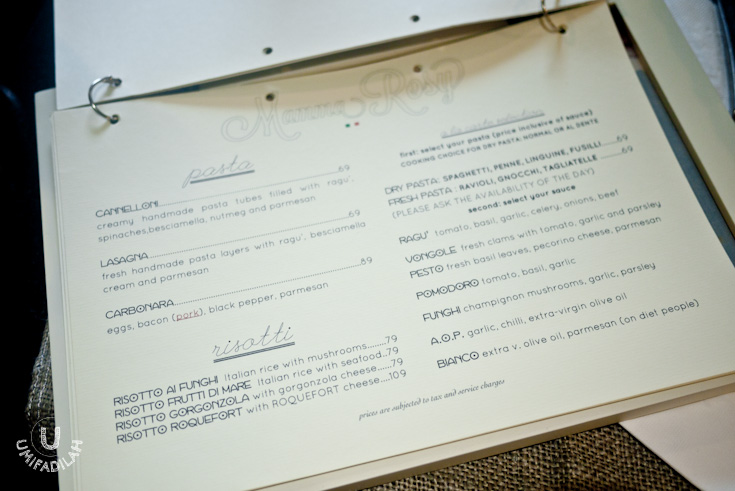 Mamma Rosy
pasta
CANNELLONI......69
creamy handmade pasta tubes filled with ragu',
spinaches,besciamella, nutmeg and parmesan
LASAGNA......69
fresh handmade pasta layers with ragu', besciamella
cream and parmesan
CARBONARA......69
eggs, bacon (pork), black pepper, parmesan
risotti
RISOTTO AI FUNGHI Italian rice with mushrooms........79
RISOTTO FRUTTI DI MARE Italian rice with seafood..79
RISOTTO GORGONZOLA with gorgonzola cheese......79
RISOTTO ROQUEFORT with ROQUEFORT cheese....109
first: select your pasta (price inclusive of sauce)
COOKING CHOICE FOR DRY PASTA: NORMAL OR AL DENTE
DRY PASTA: SPAGHETTI, PENNE, LINGUINE, FUSILLI......69
FRESH PASTA : RAVIOLI, GNOCCHI, TAGLIATELLE......69
(PLEASE ASK THE AVAILABILITY OF THE DAY)
second: select your sauce
RAGU' tomato, basil, garlic, celery, onions, beef
VONGOLE fresh clams with tomato, garlic and parsley
PESTO fresh basil leaves, pecorino cheese, parmesan
POMODORO tomato, basil, garlic
FUNGHI champignon mushrooms, garlic, parsley
A.O.P. garlic, chilli, extra-virgin olive oil
BIANCO extra v. olive oil, parmesan (on diet people)
prices are subjected to tax and service charges
U
UMIFADILAH